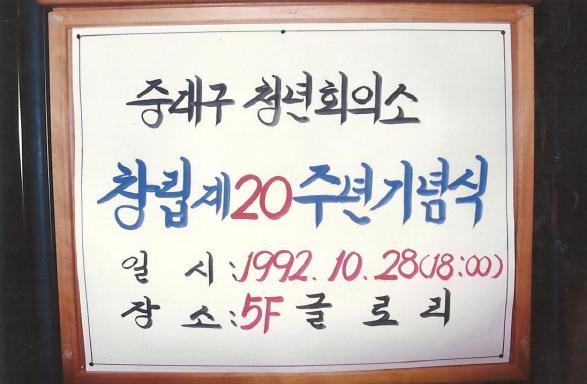 중대구 청년회의소
창립제20주년기념식
일 시:1992. 10. 28(18:00)
장 소:5F 글로리